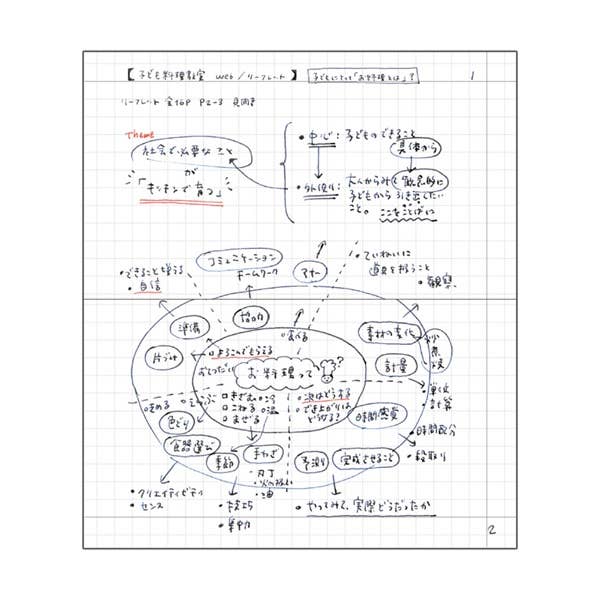 【子ども料理教室 web／リーフレット】 子どもにとって「お料理とは」？ 1
リーフレット 全16P P2-3 見開き
Theme
社会で必要なこと
が
「キッチンで育つ」
・中心：子どものできること
具体から
・外側：大人からみて
子どもから引き出したい
こと。ここをことばに
コミュニケーション
チームワーク
マナー
・ていねいに
道具を扱うこと
・観察
・自信
準備
協力
食べる
素材の変化
片づけ
よろこんでもらえる
おてつだい
お料理って？
計量
・単位
計算
きざむ
こねる
まぜる
次はどうする
でき上がりは
どうなる？
時間感覚
・時間配分
・段取り
色どり
食器選び
季節
手わざ
・包丁
・火の扱い
・油
予測
完成させること
・クリエイティビティ
・センス
・技巧
・集中力
・やってみて、実際どうだったか
2